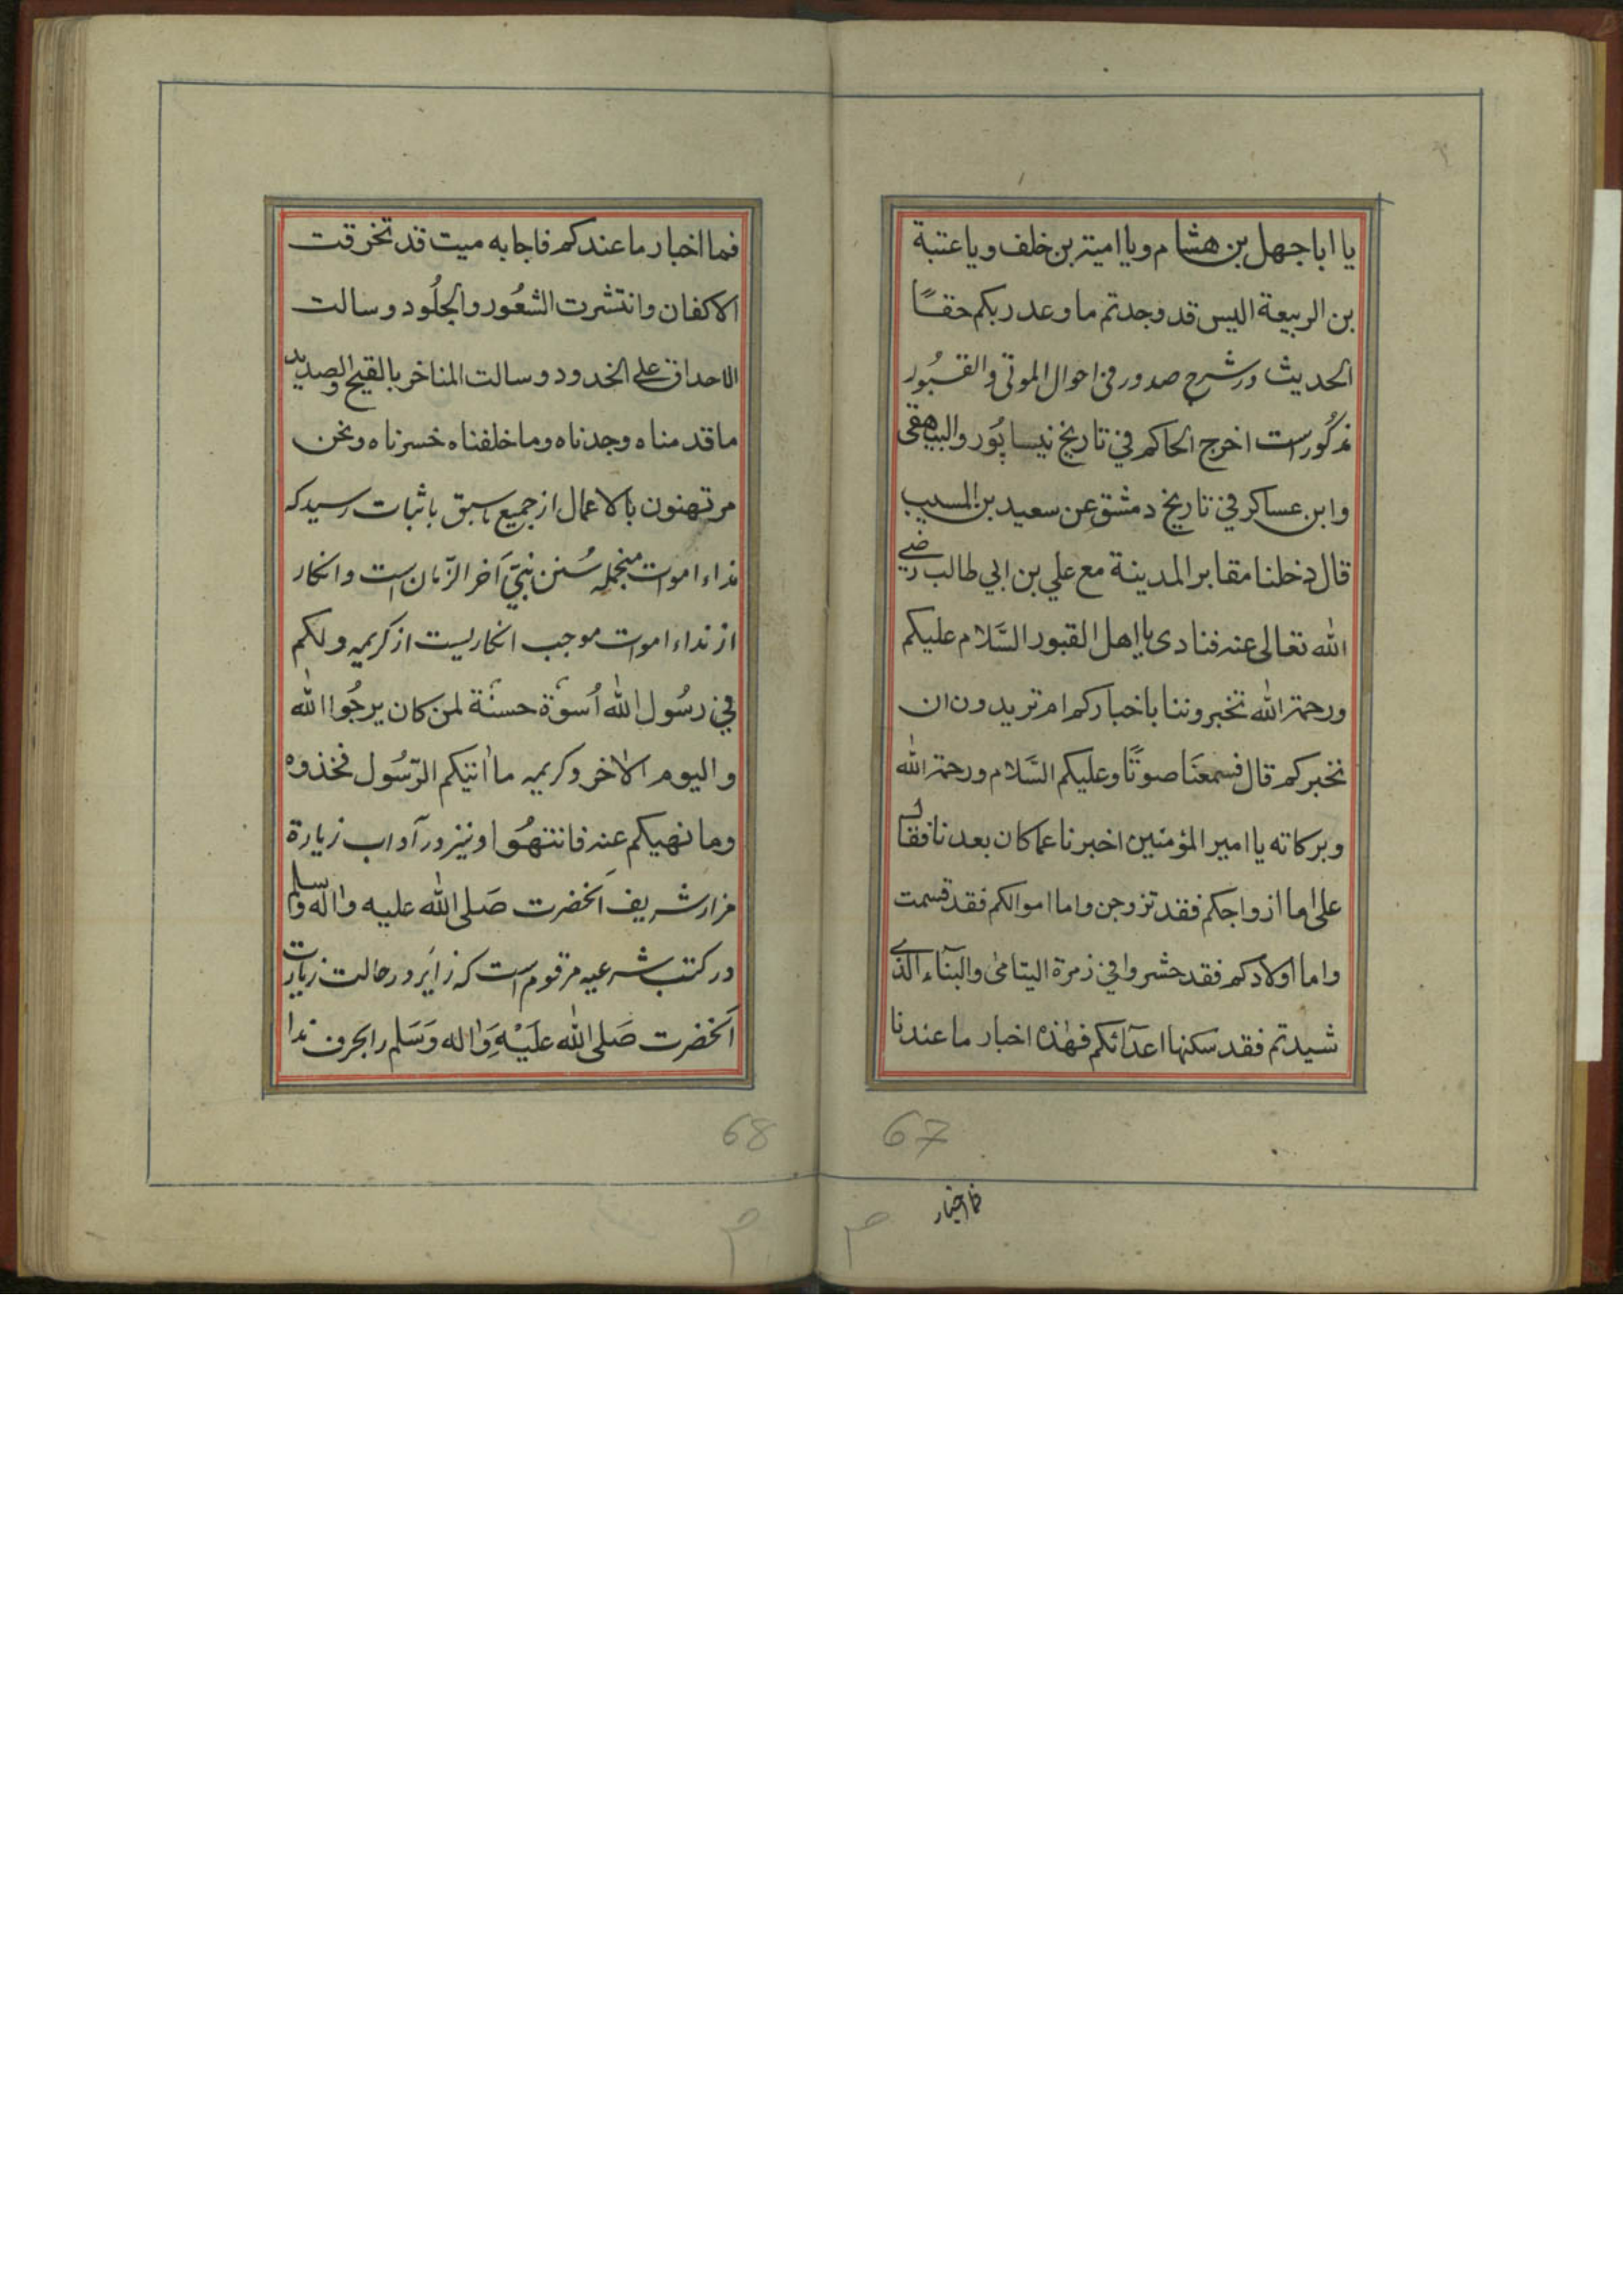 يا اباجهل بن هشام ويا امية بن خلف ويا عتبة
بن الربيعة اليس قد وجدتم ما وعد ربكم حقًا
الحديث ودر شرح صدور فى احوال الموتى والقبُور
مذكُور است اخرج الحاكم في تاريخ نيسابُور والبيهقى
وابن عساكر في تاريخ دمشق عن سعيد بن المسيب
قال دخلنا مقابر المدينة مع علي بن ابي طالب رضي
الله تعالى عنه فنادى يا اهل القبور السَّلام عليكم
ورحمة الله تخبروننا باخباركم ام تريدون ان
نخبركم قال فسمعنَا صوتًا وعليكم السَّلام ورحمة الله
وبركاته يا امير المؤمنين اخبرنا عما كان بعدنا فقال
على اما ازواجكم فقد تزوجن واما اموالكم فقد قسمت
واما اولادكم فقد حشروا في زمرة اليتامى والبنآء الذي
شيدتم فقد سكنها اعدآئكم فهذه اخبار ما عندنا
67
فما اخبار
فما اخبار ما عندكم فاجابه ميت قد تخرقت
الاكفان وانتشرت الشعُور والجلُود وسالت
الاحداق على الخدود وسالت المناخر بالقيح والصديد
ما قدمناه وجدناه وما خلفناه خسرناه ونحن
مرتهنون بالاعمال از جميع ما سبق باثبات رسيد كه
نداء اموات منجمله سُنن نبيّ آخر الزّمان است وانكار
از نداء اموات موجب انكاريست از كريمه ولكم
في رسُول الله اُسوة حسنة لمن كان يرجُوا الله
واليوم الاخر وكريمه ما اتيكم الرّسُول فخذوه
وما نهيكم عنه فانتهُوا ونيز در آداب زيارة
مزار شريف آنحضرت صَلى الله عليه واله وسلم
در كتب شرعيه مرقوم است كه زاير در حالت زيارت
آنحضرت صَلى الله عليْهِ وَاله وَسَلم را بحرف ندا
68